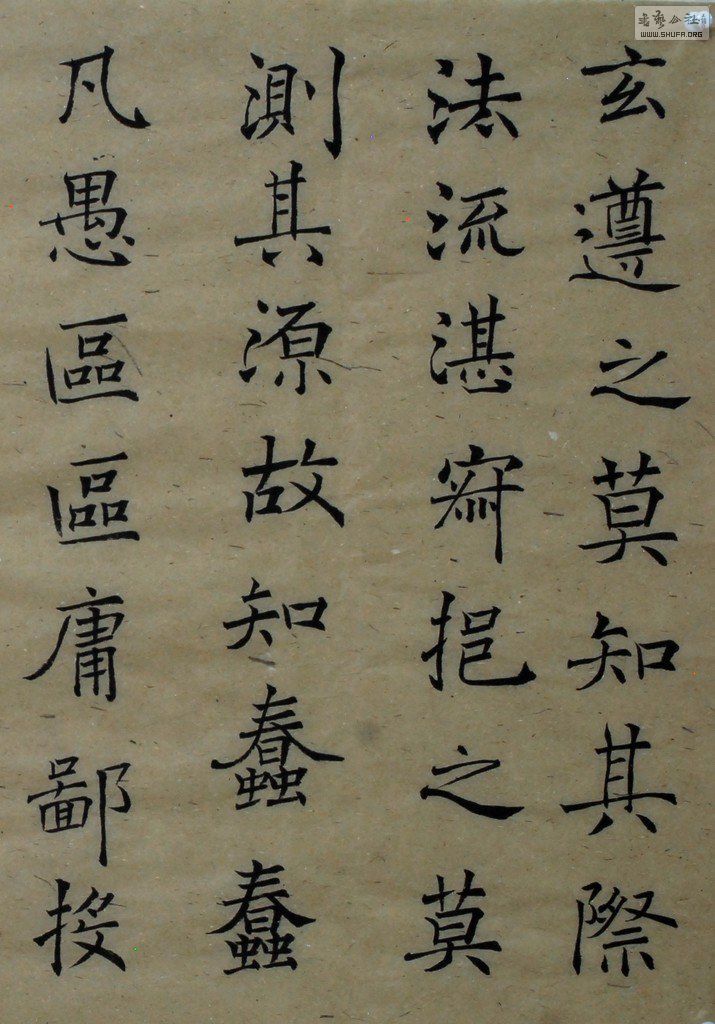 玄遵之莫知其際
法流湛寂挹之莫
測其源故知蠢蠢
凡愚區區庸鄙投
書藝公社
WWW.SHUFA.ORG